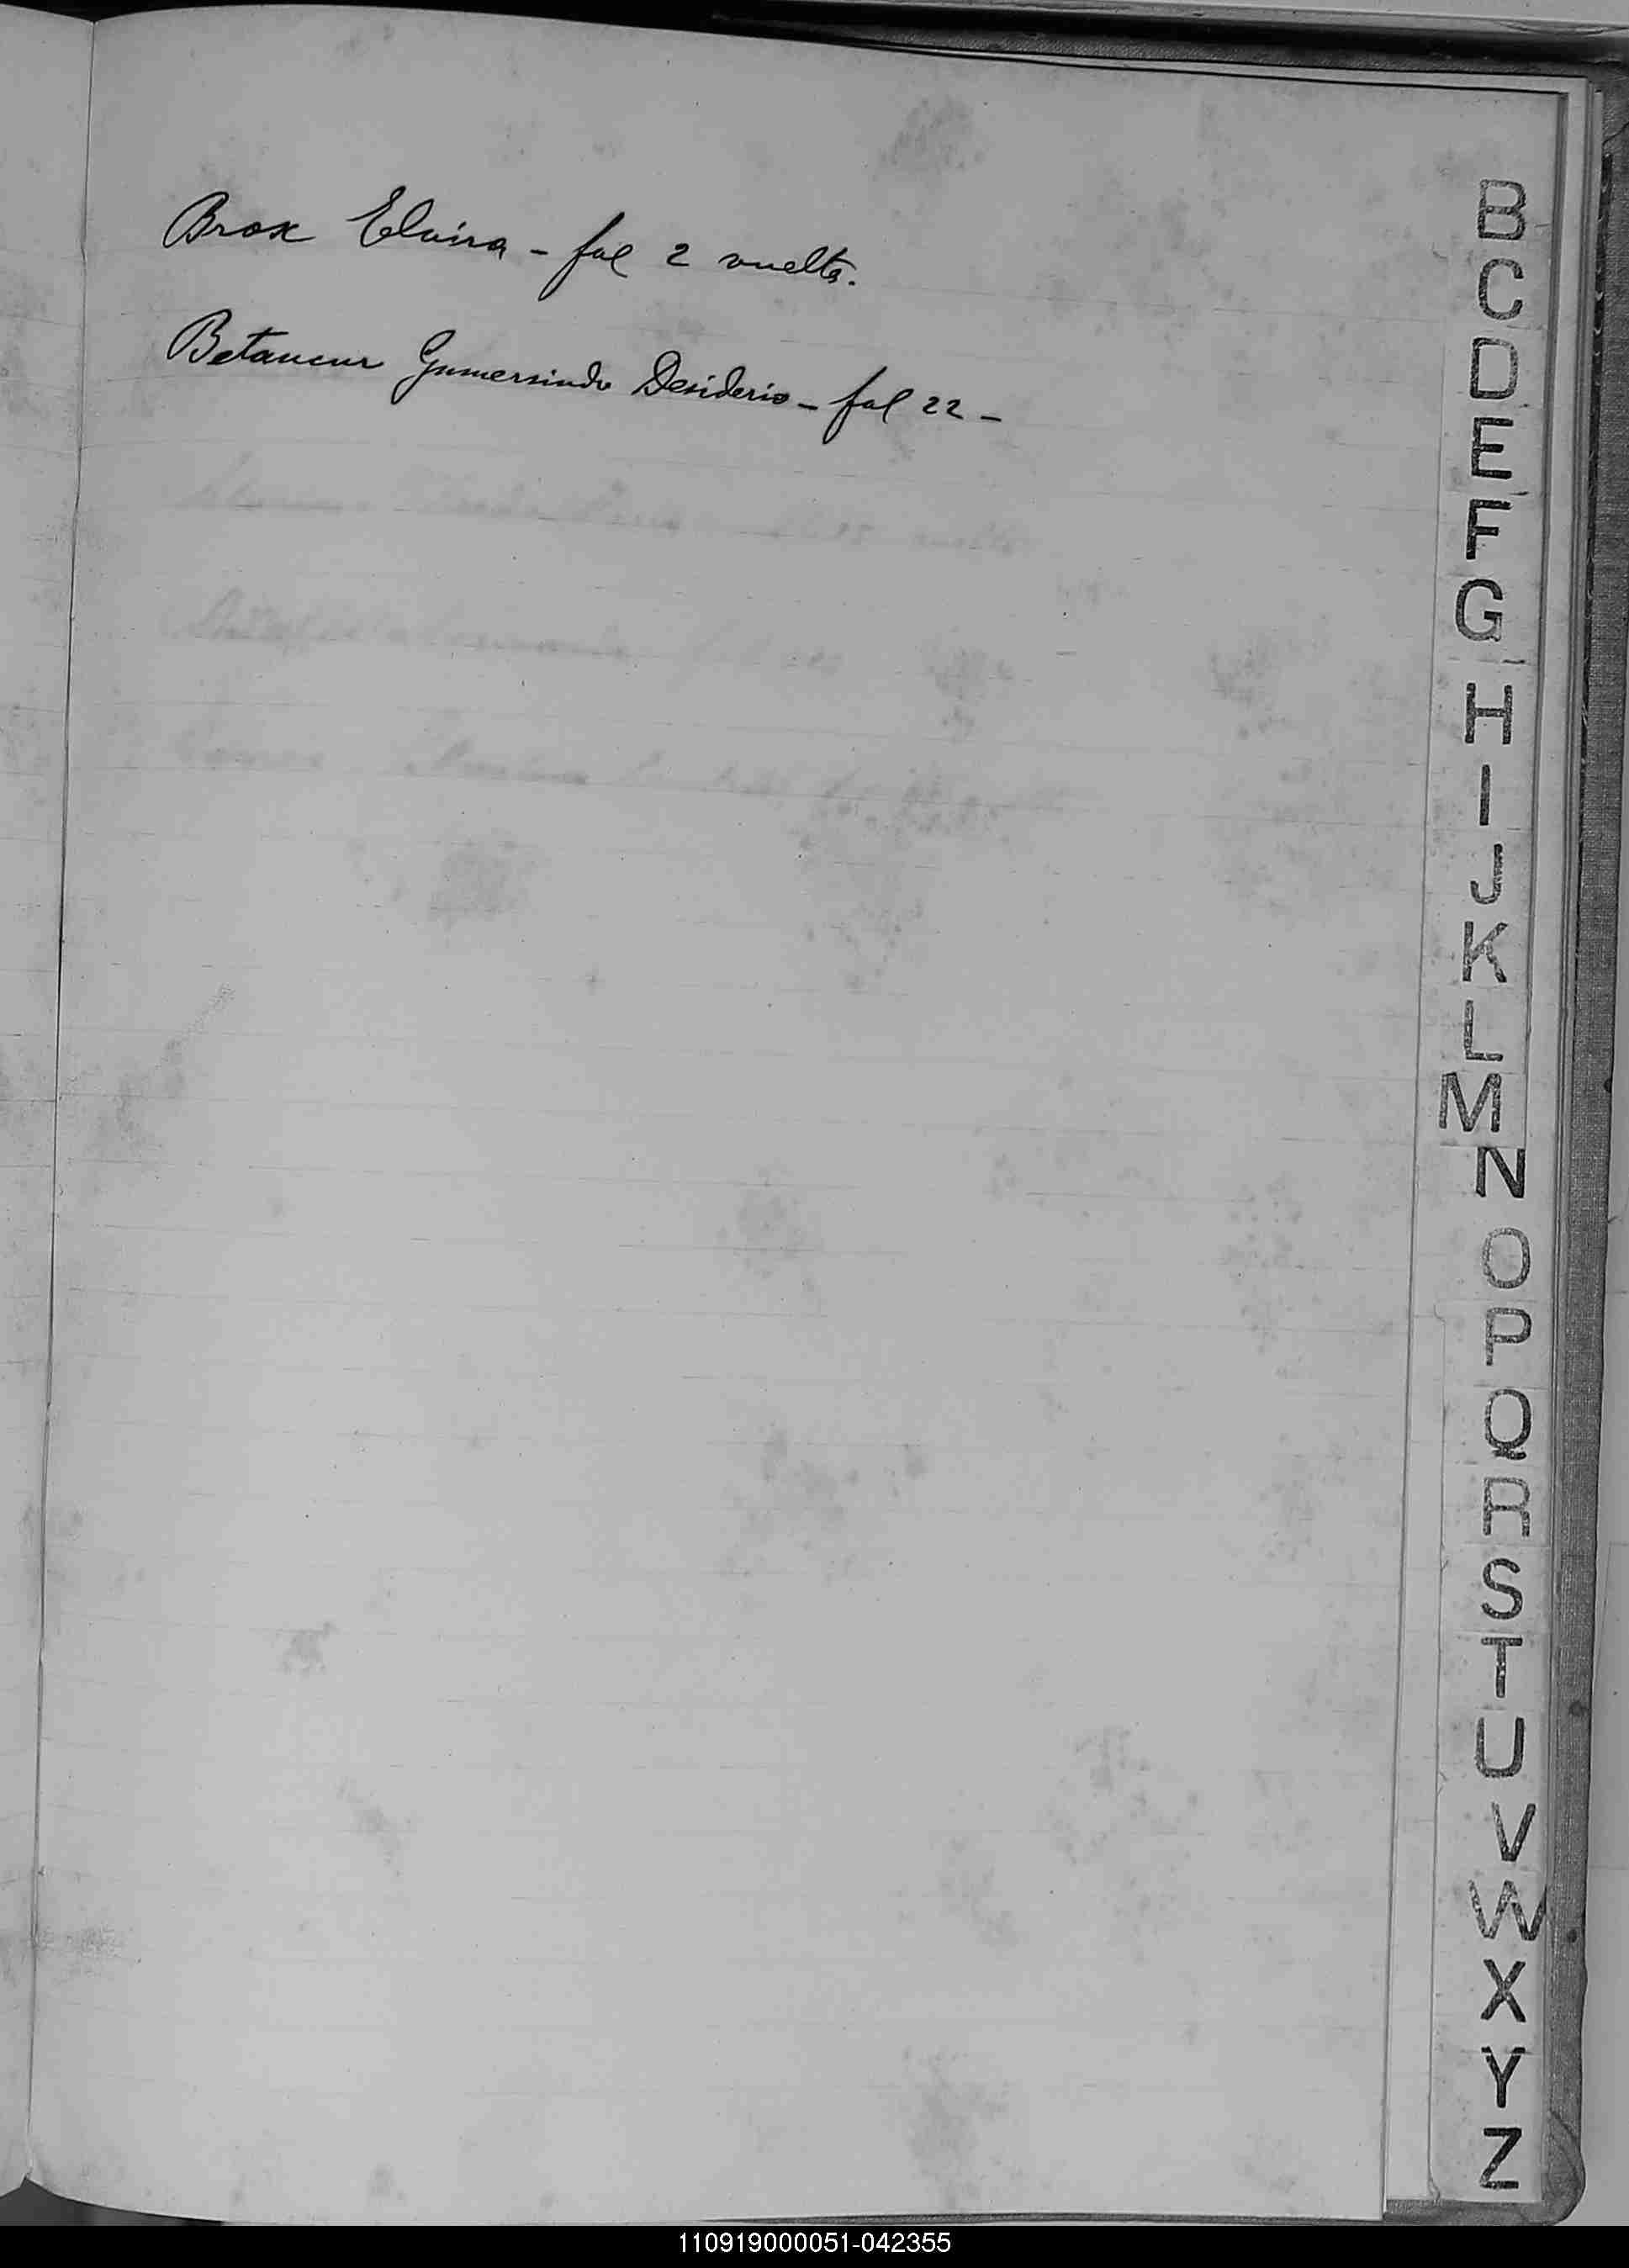 Brox Elvira - fol 2 vuelta.
Betancur Gumersindo Desiderio - fol 22 -
B
C
D
E
F
G
H
I
J
K
L
M
N
O
P
Q
R
S
T
U
V
W
X
Y
Z
110919000051-042355